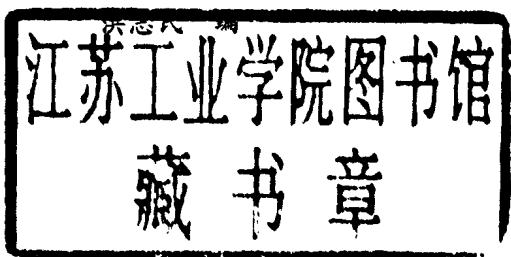 编
江苏工业学院图书馆
藏书章